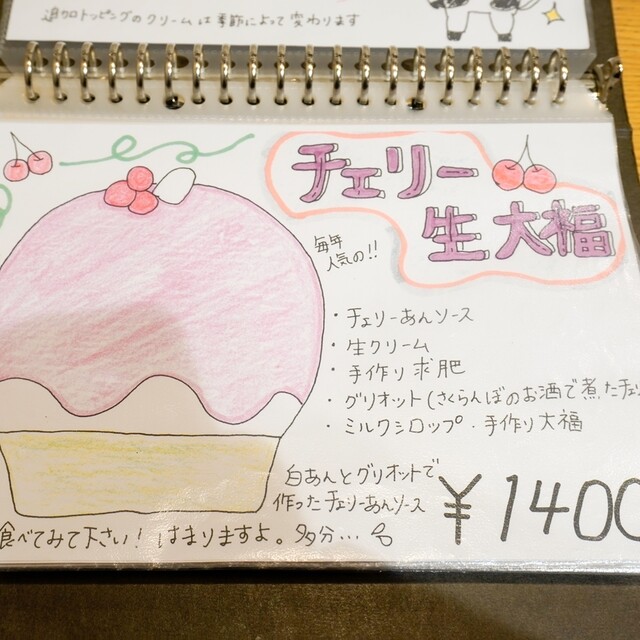 追加トッピングのクリームは季節によって変わります
チェリー
生大福
毎年
人気の!!
・チェリーあんソース
・生クリーム
・手作り求肥
・グリオット(さくらんぼのお酒で煮たチェ
・ミルクシロップ・手作り大福
白あんとグリオットで
作ったチェリーあんソース
¥1400
食べてみて下さい!はまりますよ。多分…